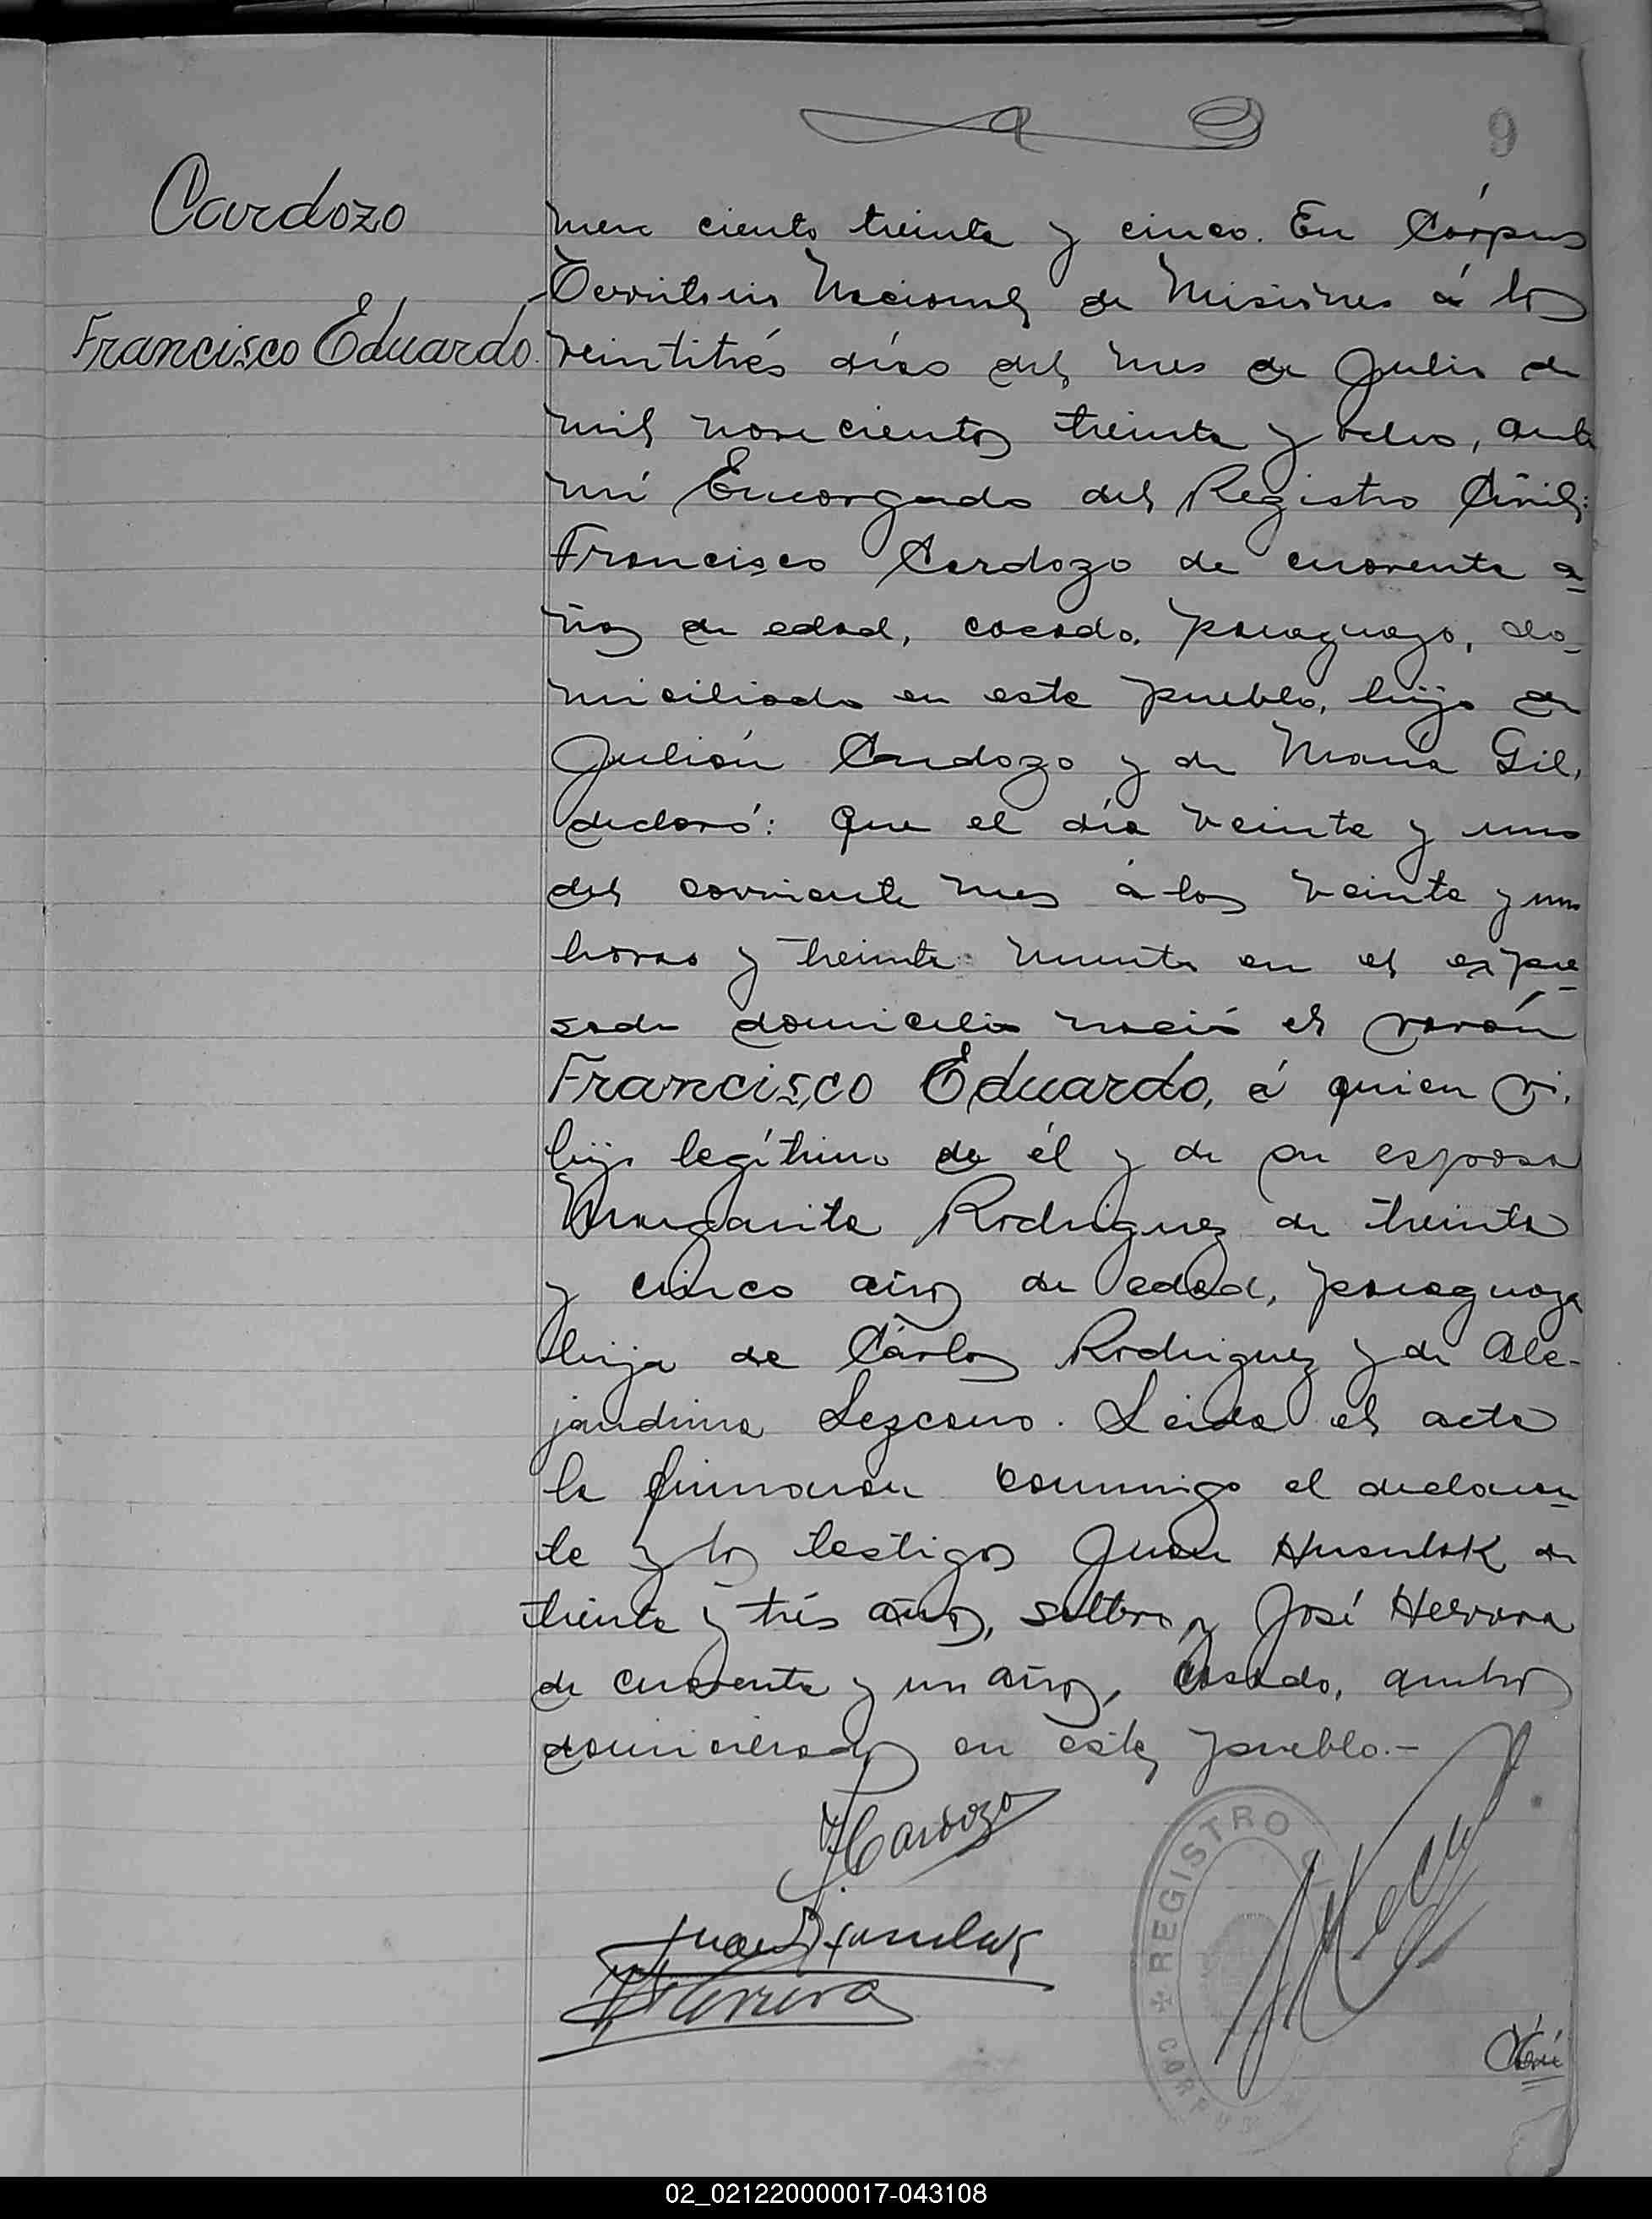 9
Cardozo
Francisco Eduardo.
mero ciento treinta y cinco. En Córpus
Territorio Nacional de Misiones á los
veintitrés días del mes de Julio de
mil novecientos treinta y ocho, ante
mí Encargado del Registro Civil:
Francisco Cardozo de cuarenta a-
ños de edad, casado, paraguayo, do-
miciliado en este pueblo, hijo de
Julián Cardozo y de María Gil,
declaró: Que el día veinte y uno
del corriente mes á las veinte y una
horas y treinta minutos en el expre-
sado domicilio nació el varón
Francisco Eduardo, á quien vi,
hijo legítimo de él y de su esposa
Margarita Rodriguez de treinta
y cinco años de edad, paraguaya
hija de Cárlos Rodriguez y de Ale-
jandrina Lezcano. Leida el acta
la firmaron conmigo el declaran-
te y los testigos Juan Husulak de
treinta y trés años, soltero, y José Herrera
de cuarenta y un años, casado, ambos
domiciliados en este pueblo.-
F. Cardozo
Juan Husulak
J Herrera
REGISTRO
CORPUS
02_021220000017-043108